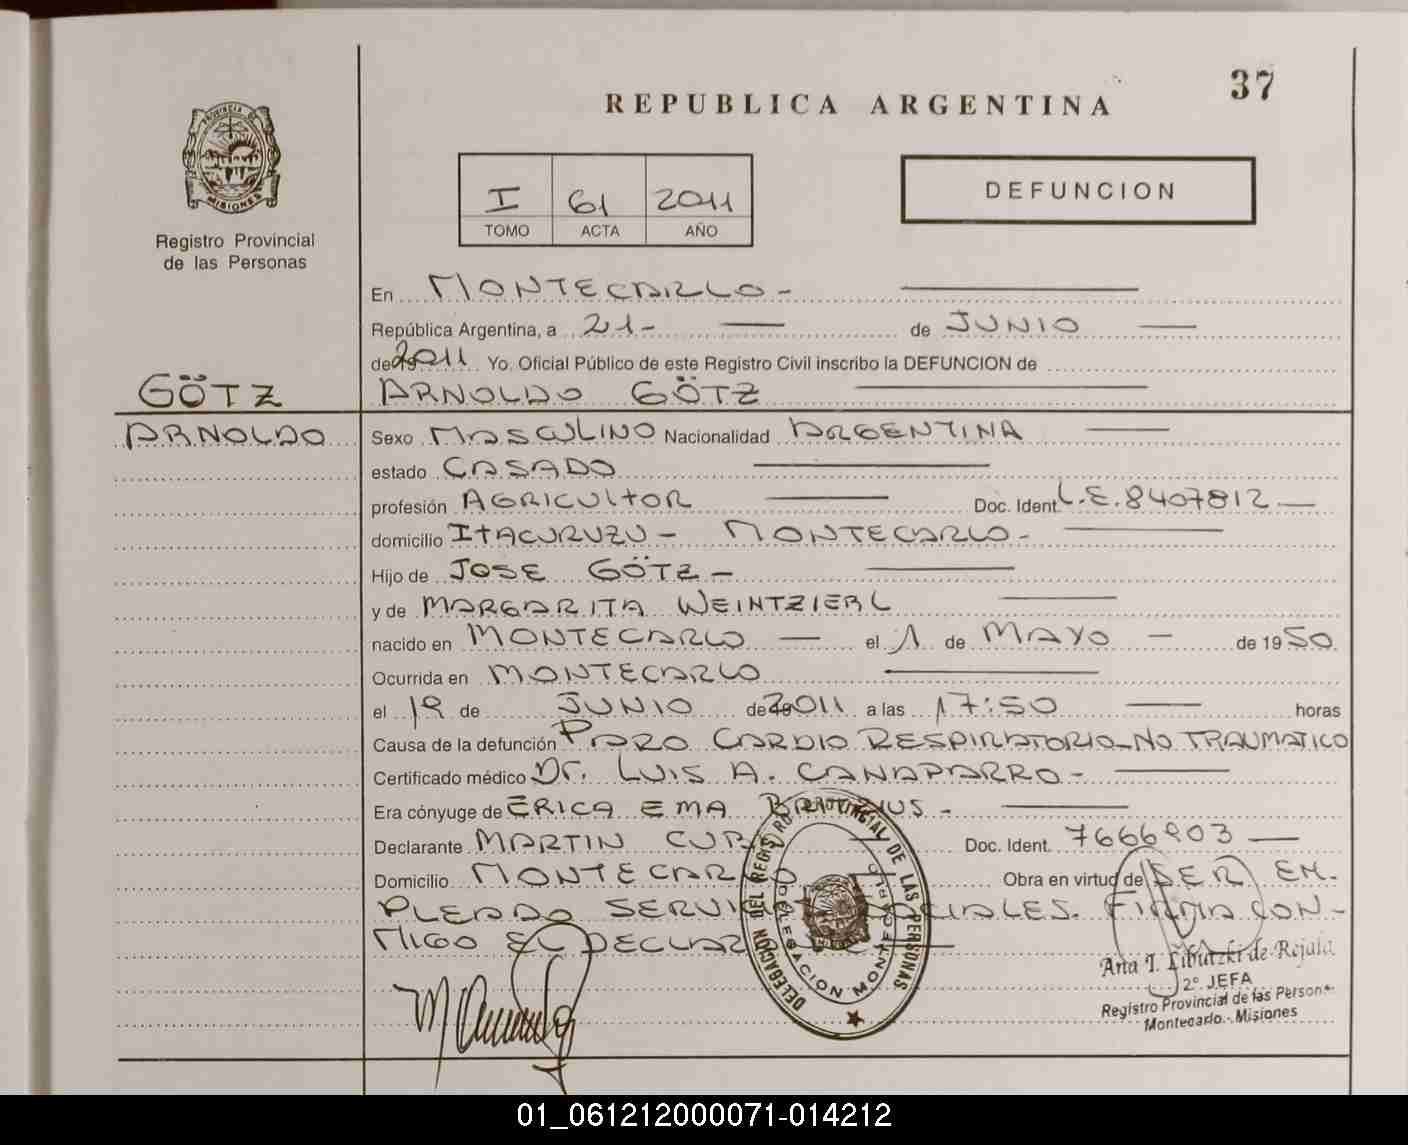 37
REPUBLICA ARGENTINA
PROVINCIA DE
MISIONES
Registro Provincial
de las Personas
I 61 2011
TOMO ACTA AÑO
DEFUNCION
En MONTECARLO -
República Argentina, a 21- de JUNIO
de 2011 Yo. Oficial Público de este Registro Civil inscribo la DEFUNCION de
GÖTZ ARNOLDO GÖTZ
ARNOLDO Sexo MASCULINO Nacionalidad ARGENTINA
estado CASADO
profesión AGRICULTOR Doc. Ident. L.E. 8407812
domicilio ITACURUZU - MONTECARLO -
Hijo de JOSE GÖTZ -
y de MARGARITA WEINTZIERL
nacido en MONTECARLO el 1 de MAYO de 1950
Ocurrida en MONTECARLO
el 19 de JUNIO de 2011 a las 17:50 horas
Causa de la defunción PARO CARDIO RESPIRATORIO-NO TRAUMATICO
Certificado médico Dr. LUIS A. CANAPARRO -
Era cónyuge de ERICA EMA -
Declarante MARTIN Doc. Ident. 7666903
Domicilio MONTECARLO Obra en virtud de SER EM-
PLEADO SERVICIOS SOCIALES. FIRMA CON-
MIGO EL DECLARANTE
DELEGACION DEL REGISTRO PROVINCIAL DE LAS PERSONAS
DELEGACION MONTECARLO
Ana I. Libutzki de Rejala
2º JEFA
Registro Provincial de las Personas
Montecarlo - Misiones
01_061212000071-014212